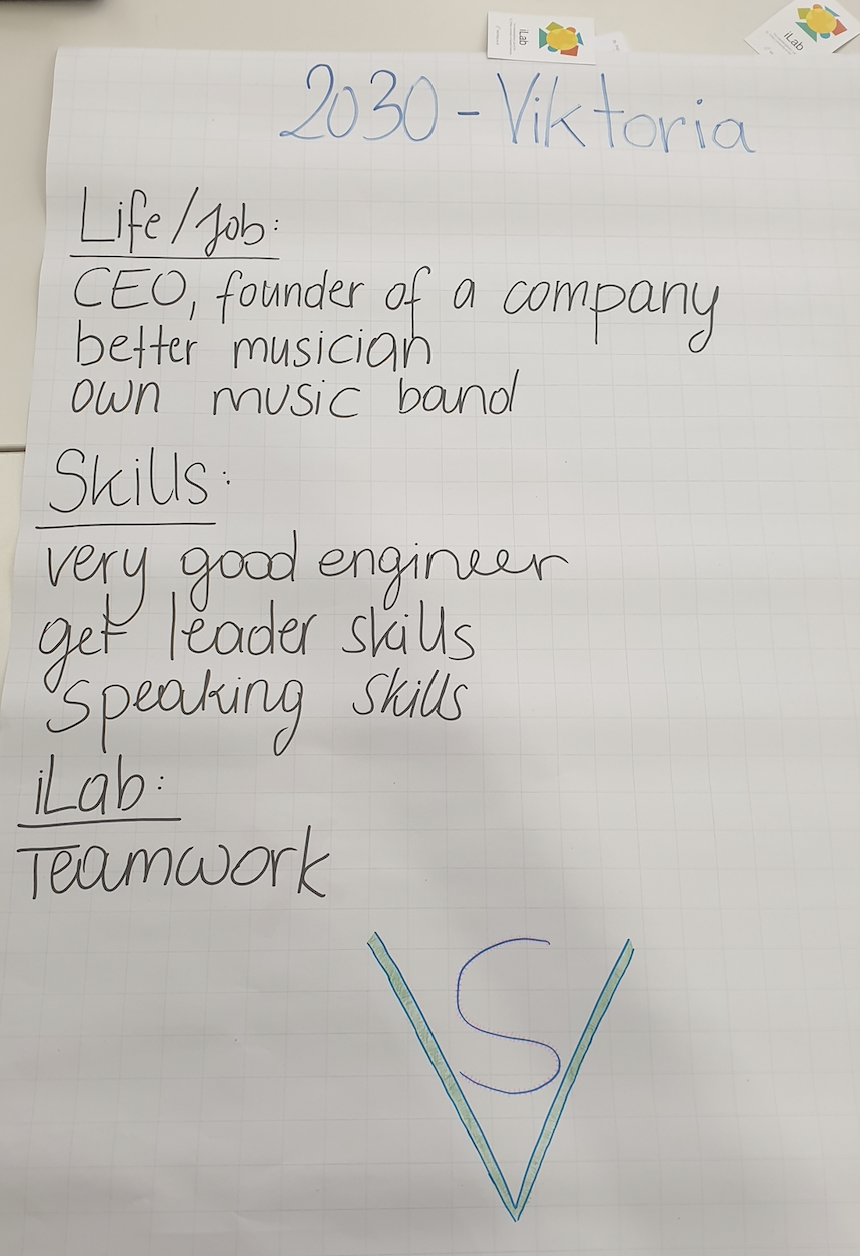 iLab
iLab
2030 - Viktoria
Life/Job:
CEO, founder of a company
better musician
own music band
Skills:
very good engineer
get leader skills
speaking skills
iLab:
Teamwork
S
V